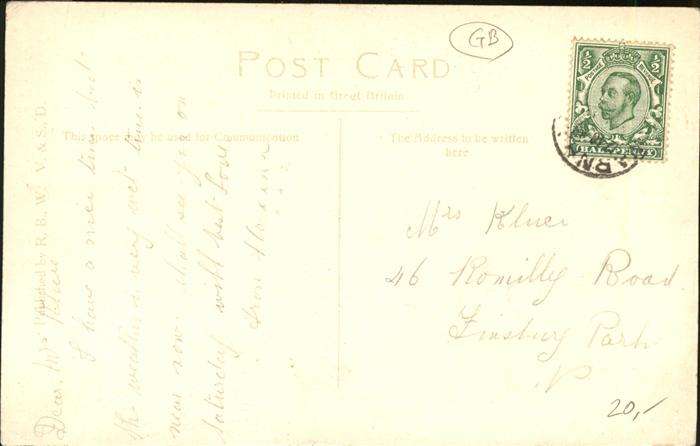 GB
POST CARD
Printed in Great Britain
This space may be used for Communication
The Address to be written
here
Published by R. B. W. V. & S. D.
½ ½
POSTAGE
HALFPENNY
Dear Mrs
I have a nice time but
the weather is very wet
now. Shall see you on
Saturday with best love
from
Mrs
46 Romilly Road
Finsbury Park
N
20,-